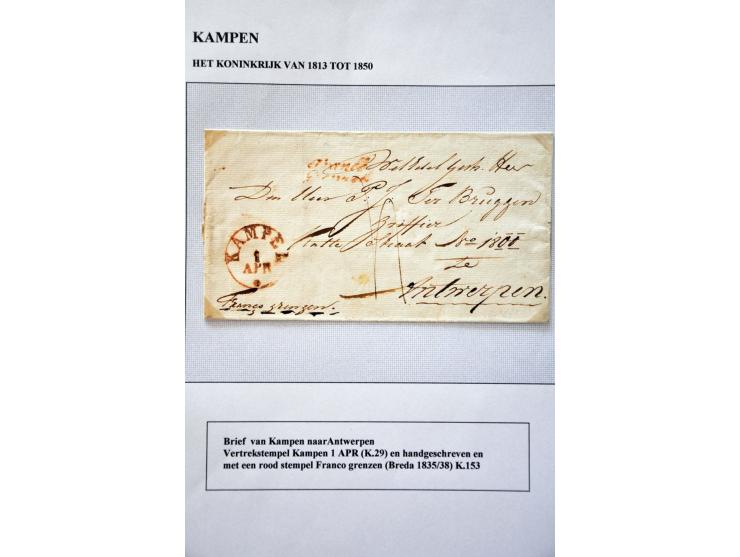 KAMPEN
HET KONINKRIJK VAN 1813 TOT 1850
Franco
Grenzen
WelEdelGeb. Heer
Den Heer P. J. Ter Bruggen
Griffier
Straat No 1800
te
Antwerpen.
KAMPEN
1
APR
Franco grenzen.
Brief van Kampen naarAntwerpen
Vertrekstempel Kampen 1 APR (K.29) en handgeschreven en
met een rood stempel Franco grenzen (Breda 1835/38) K.153